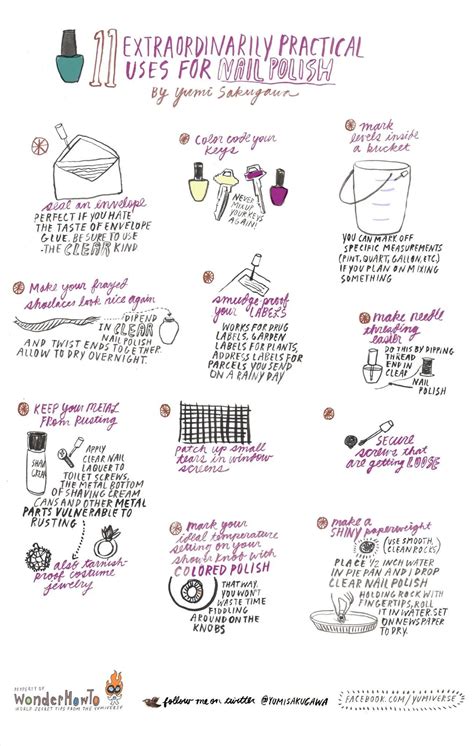 11 EXTRAORDINARILY PRACTICAL
USES FOR NAIL POLISH
By Yumi Sakugawa
seal an envelope
PERFECT IF YOU HATE
THE TASTE OF ENVELOPE
GLUE. BE SURE TO USE
-THE CLEAR KIND
color code your
keys
NEVER
MIX UP
YOUR KEYS
AGAIN!
mark
levels inside
a bucket
YOU CAN MARK OFF
SPECIFIC MEASUREMENTS
(PINT, QUART, GALLON, ETC.)
IF YOU PLAN ON MIXING
SOMETHING
Make your frayed
shoelaces look nice again
DIP END
IN CLEAR
NAIL POLISH
AND TWIST ENDS TOGETHER.
ALLOW TO DRY OVERNIGHT.
smudge-proof
your LABELS
WORKS FOR DRUG
LABELS, GARDEN
LABELS FOR PLANTS,
ADDRESS LABELS FOR
PARCELS YOU SEND
ON A RAINY DAY
make needle
threading
easier
DO THIS BY DIPPING
THREAD
END IN
CLEAR
NAIL
POLISH
KEEP your METAL
From Rusting
SHAVE
CREAM
APPLY
CLEAR NAIL
LAQUER TO
TOILET SCREWS,
THE METAL BOTTOM
OF SHAVING CREAM
CANS AND OTHER METAL
PARTS VULNERABLE TO
RUSTING
also tarnish-
proof costume
jewelry
patch up small
tears in window
screens
secure
screws that
are getting LOOSE
mark your
ideal temperature
setting on your
shower knob with
COLORED POLISH
THAT WAY,
YOU WON'T
WASTE TIME
FIDDLING
AROUND
ON THE
KNOBS
make a
SHINY paperweight
(USE SMOOTH,
CLEAN ROCKS)
PLACE 1/2 INCH WATER
IN PIE PAN AND 1 DROP
CLEAR NAIL POLISH
HOLDING ROCK WITH
FINGERTIPS, ROLL
IT IN WATER. SET
ON NEWSPAPER
TO DRY.
PROPERTY OF
WonderHowTo
WORLD SECRET TIPS FROM THE YUMIVERSE
follow me on twitter @YUMISAKUGAWA
FACEBOOK.COM/YUMIVERSE